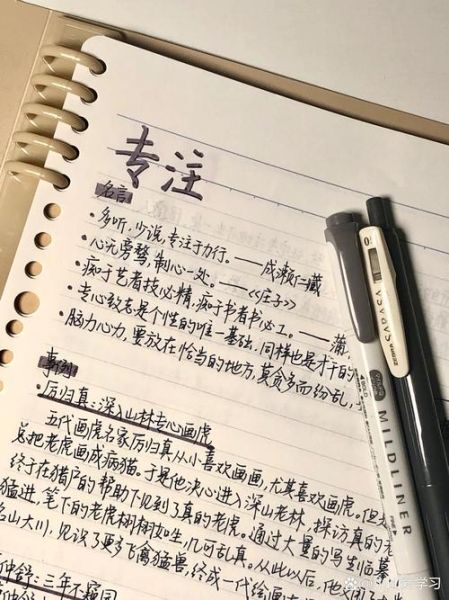 专注
名言
·多听，少说，专注于力行。——成濑仁藏
·心无旁骛，制心一处。——《庄子》
·痴于艺者技必精，痴于书者书必工。——蒲
·专心致志是个性的唯一基础，同样也是才干的
·脑力心力，要放在恰当的地方，莫贪多而纷乱，
事例
·厉归真：深入山林专心画虎
五代画虎名家厉归真从小喜欢画画，尤其喜欢画虎。但
总把老虎画成病猫。于是他决心进入深山老林，探访真的老
终于在猎户的帮助下见到了真的老虎。通过大量的写生临摹
猛进，笔下的老虎栩栩如生，几可乱真。从此以后，他又
名山大川，见识了更多飞禽猛兽，终成一代绘画
仲舒：三年不窥园
MILDLINER
ZEBRA
SARASA
学习